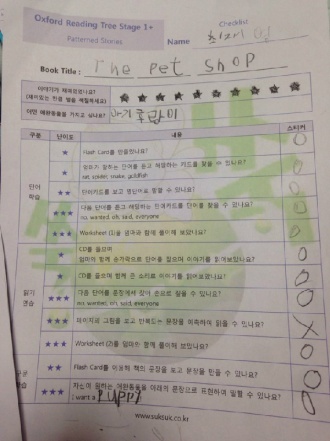 Oxford Reading Tree Stage 1+
Patterned Stories
Checklist
Name
Book Title : The pet shop
이야기가 재미있었나요?
(재미있는 만큼 별을 색칠하세요)
★ ★ ★ ★ ★ ★ ★ ★ ★ ★
어떤 애완동물을 가지고 싶나요?
구분 난이도 내용 스티커
★ Flash Card를 만들었나요? O
★ 엄마가 말하는 단어를 듣고 해당하는 카드를 찾을 수 있나요? O
rat, spider, snake, goldfish
단어 학습
★★ 단어카드를 보고 영단어로 말할 수 있나요? O
★★★ 다음 단어를 듣고 해당하는 단어카드를 찾을 수 있나요? O
no, wanted, oh, said, everyone
★★★ Worksheet (1)을 엄마와 함께 풀어 보았나요? O
★ CD를 들으며 O
엄마와 함께 손가락으로 단어를 짚으며 이야기를 읽어보았나요?
★ CD를 들으며 함께 큰 소리로 이야기를 읽어보았나요? O
읽기 학습
★★★ 다음 단어를 문장에서 찾아 읽을 수 있나요? O
no, wanted, oh, said, everyone
★★★ 페이지의 그림을 보고 반복되는 문장을 예측하여 읽을 수 있나요? X
★★★ Worksheet (2)를 엄마와 함께 풀어 보았나요? O
★★ Flash Card를 이용해 책의 문장을 보고 문장을 만들 수 있나요? O
★★★ 자신이 원하는 애완동물을 아래의 문장으로 표현하여 말할 수 있나요? O
I want a puppy
www.suksuk.co.kr